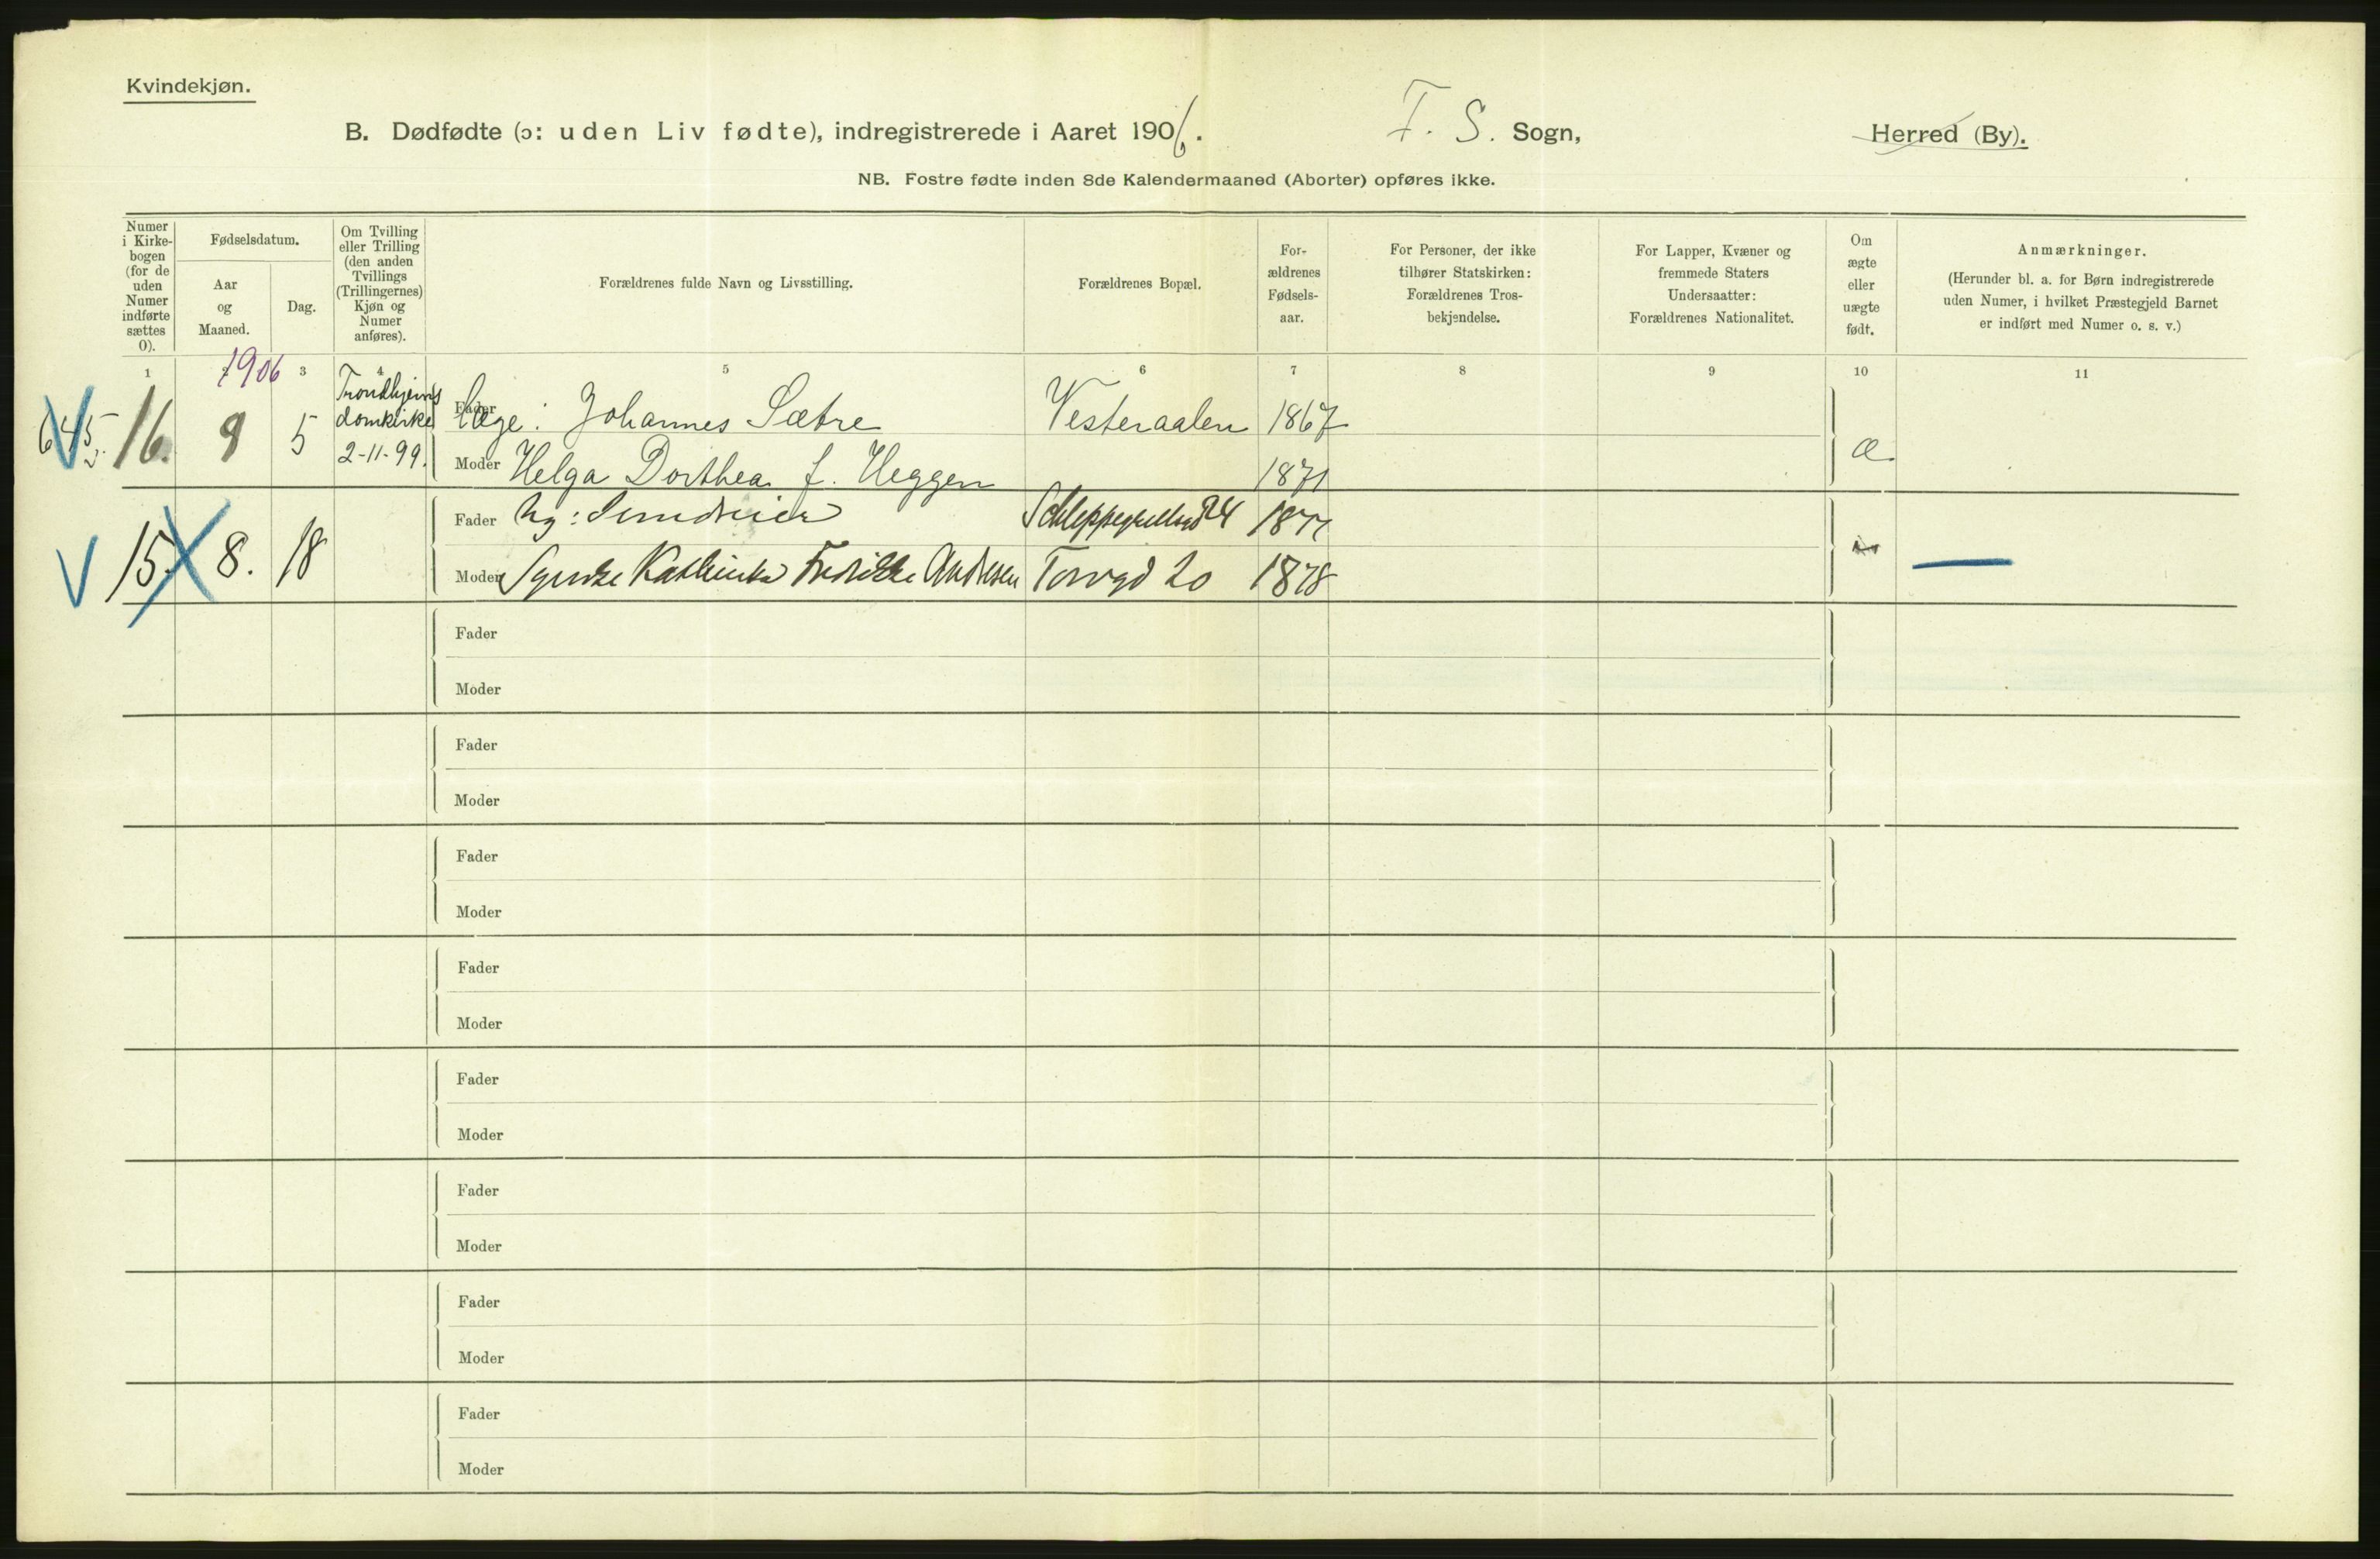 Kvindekjøn.
B. Dødfødte (ɔ: uden Liv fødte), indregistrerede i Aaret 1906. F. S. Sogn, Herred (By).
NB. Fostre fødte inden 8de Kalendermaaned (Aborter) opføres ikke.
Numer i Kirke-bogen (for de uden Numer indførte sættes 0).
Fødselsdatum.
Aar og Maaned.
Dag.
Om Tvilling eller Trilling (den anden Tvillings (Trillingernes) Kjøn og Numer anføres).
Forældrenes fulde Navn og Livsstilling.
Forældrenes Bopæl.
For-ældrenes Fødsels-aar.
For Personer, der ikke tilhører Statskirken: Forældrenes Tros-bekjendelse.
For Lapper, Kvæner og fremmede Staters Undersaatter: Forældrenes Nationalitet.
Om ægte eller uægte født.
Anmærkninger.
(Herunder bl. a. for Børn indregistrerede uden Numer, i hvilket Præstegjeld Barnet er indført med Numer o. s. v.)
1 1906 3 4 5 6 7 8 9 10 11
16. 9 5 Trondhjems domkirke 2-11-99.
Fader Læge: Johannes Sætre Vesteraalen 1867
Moder Helga Dorthea f. Heggen 1871 æ.
15. 8. 18
Fader Schleppegrellsgd 24
Moder Fredrikke Andresen Torvgd 20 1878
Fader
Moder
Fader
Moder
Fader
Moder
Fader
Moder
Fader
Moder
Fader
Moder
Fader
Moder
Fader
Moder